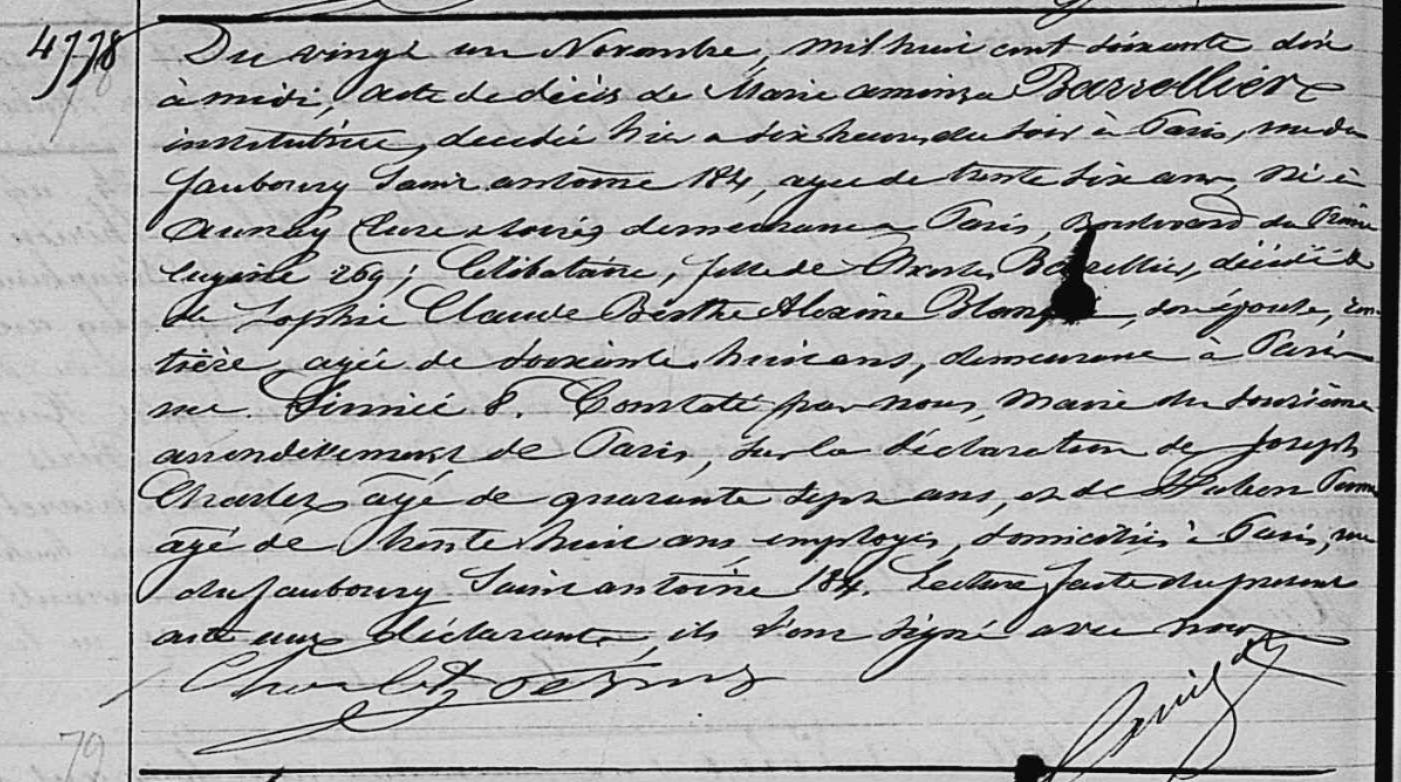 4778
Du vingt un Novembre, mil huit cent soixante dix
à midi, acte de décès de Marie aminza Barrellier
institutrice, décédée hier a six heures du soir à Paris, rue du
faubourg Saint antoine 184, agée de trente six ans, née à
Aunay (Eure et Loire) demeurant a Paris, Boulevard du Prince
Eugène 269; Célibataire, fille de Charles Barrellier, décédé &
de Sophie Claude Berthe Alexine, son épouse, ren-
tière, agée de soixante huit ans, demeurant à Paris
rue 8. Constaté par nous, Maire du douzième
arrondissement de Paris, sur la déclaration de Joseph
Charles agé de quarante sept ans, et de
agé de trente huit ans, employés, domiciliés à Paris, rue
du faubourg Saint antoine 184. Lecture faite du présent
acte aux déclarants, ils l'ont signé avec nous
79